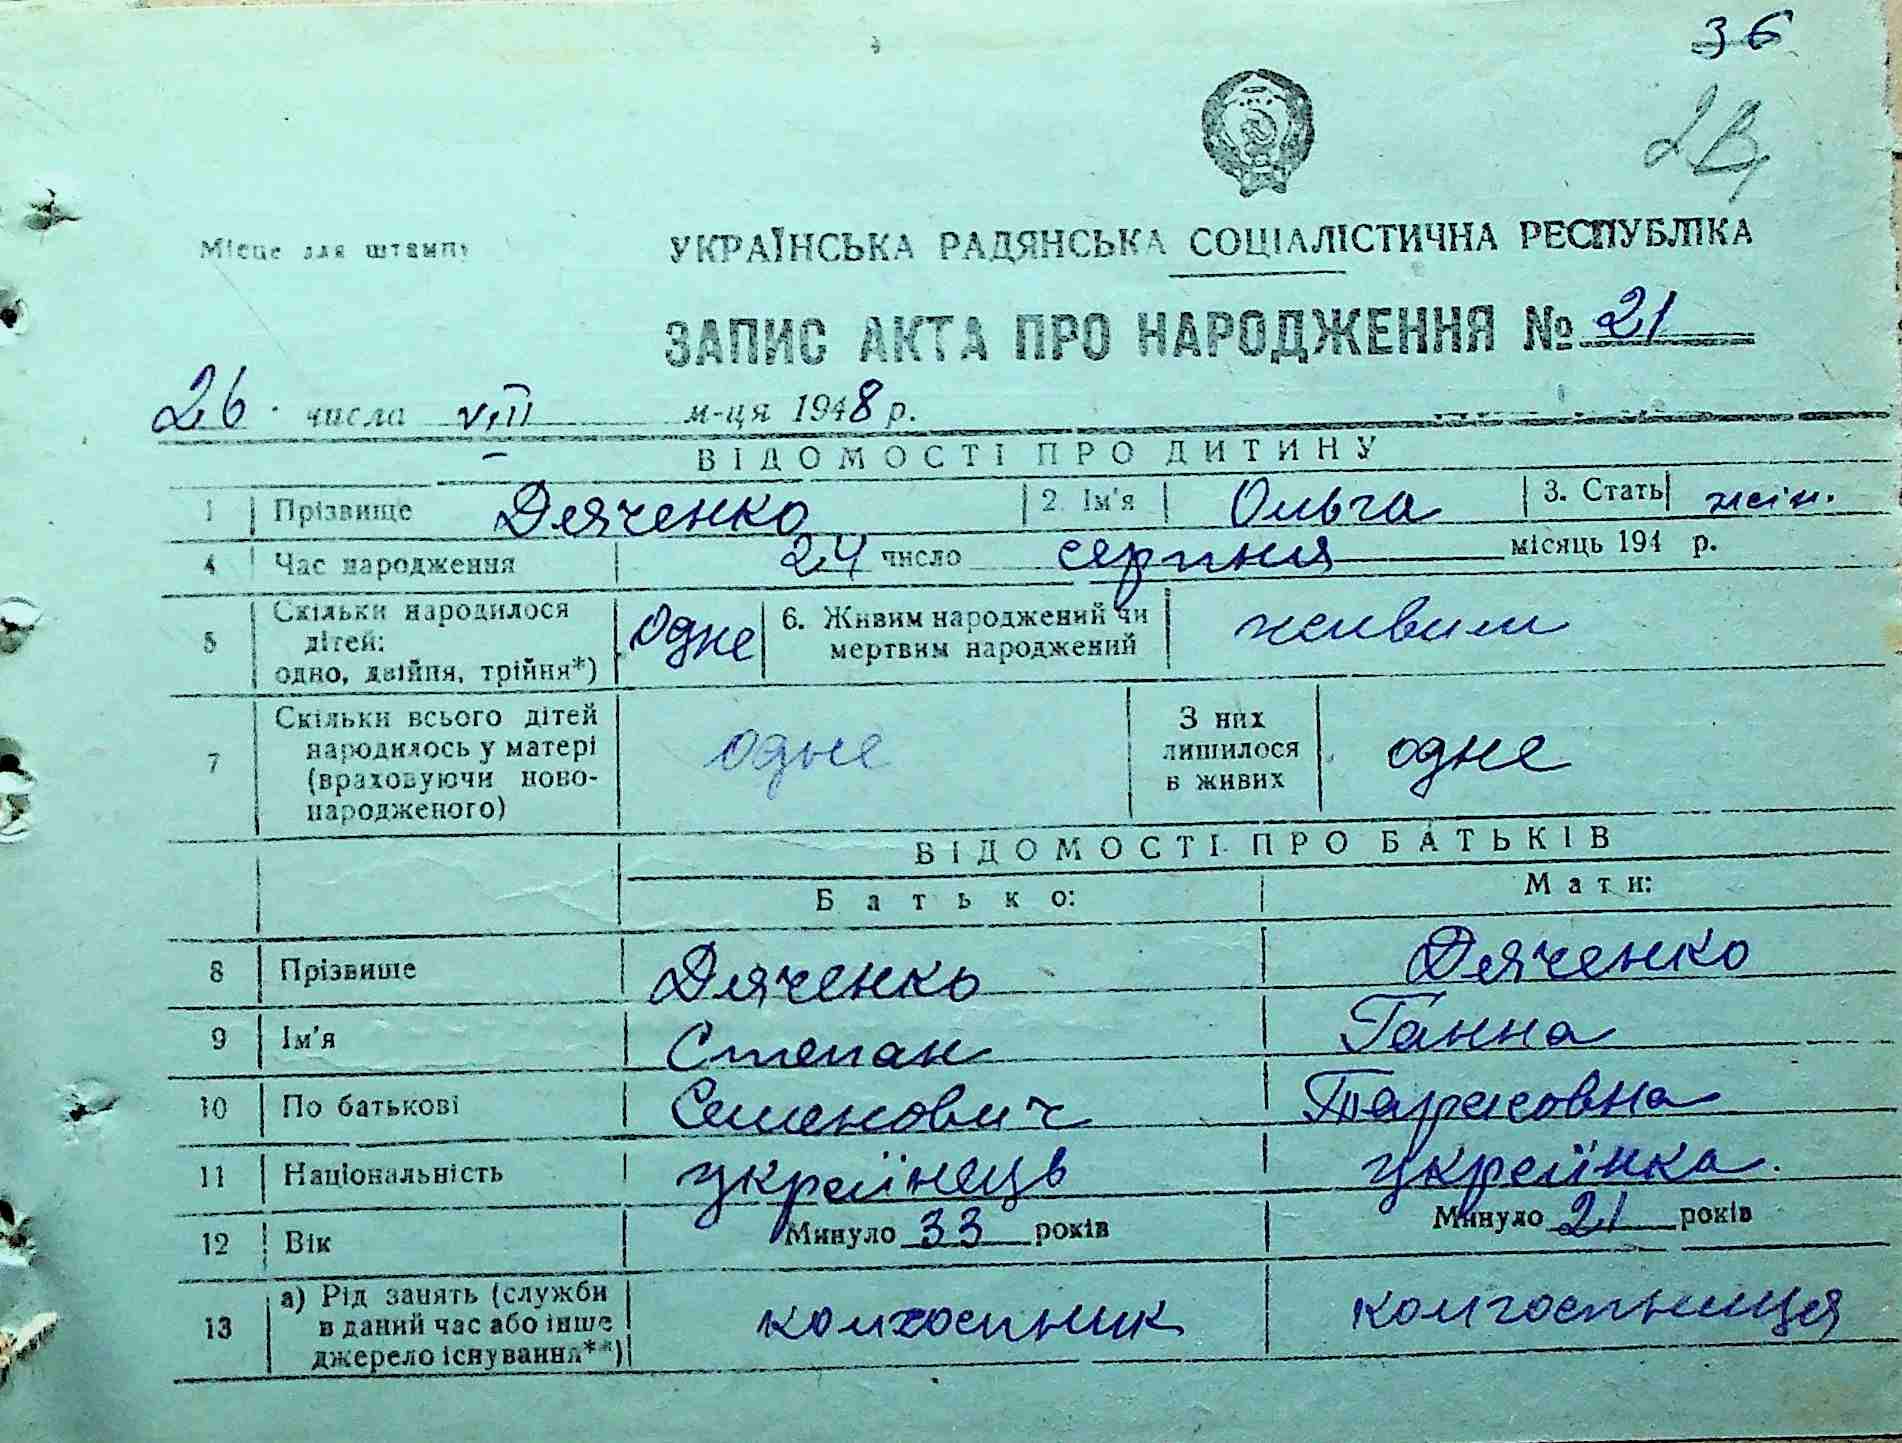 36
Місце для штампу
УКРАЇНСЬКА РАДЯНСЬКА СОЦІАЛІСТИЧНА РЕСПУБЛІКА
ЗАПИС АКТА ПРО НАРОДЖЕННЯ № 21
26 числа VIII м-ця 1948 р.
ВІДОМОСТІ ПРО ДИТИНУ
1 Прізвище Дяченко 2. Ім'я Ольга 3. Стать жін.
4 Час народження 24 число серпня місяць 194 р.
5 Скільки народилося дітей: одно, двійня, трійня*) одне 6. Живим народжений чи мертвим народжений живим
7 Скільки всього дітей народилось у матері (враховуючи ново-народженого) одне З них лишилося в живих одне
ВІДОМОСТІ ПРО БАТЬКІВ
Батько: Мати:
8 Прізвише Дяченко Дяченко
9 Ім'я Степан Ганна
10 По батькові Семенович Тарасовна
11 Національність українець українка.
12 Вік Минуло 33 років Минуло 21 років
13 а) Рід занять (служби в даний час або інше джерело існування**) колхоспник колгоспниця